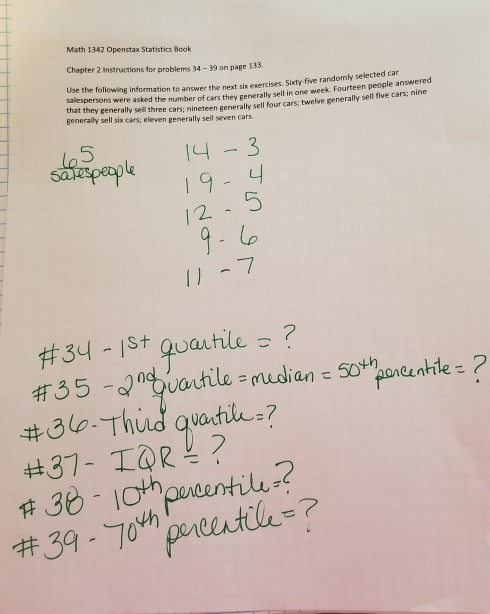 Math 1342 Openstax Statistics Book
Chapter 2 Instructions for problems 34 – 39 on page 133.
Use the following information to answer the next six exercises. Sixty-five randomly selected car
salespersons were asked the number of cars they generally sell in one week. Fourteen people answered
that they generally sell three cars; nineteen generally sell four cars; twelve generally sell five cars; nine
generally sell six cars; eleven generally sell seven cars.
65
salespeople
14 - 3
19 - 4
12 - 5
9 - 6
11 - 7
#34 - 1st quartile = ?
#35 - 2nd quartile = median = 50th percentile = ?
#36 - Third quartile = ?
#37 - IQR = ?
#38 - 10th percentile = ?
#39 - 70th percentile = ?